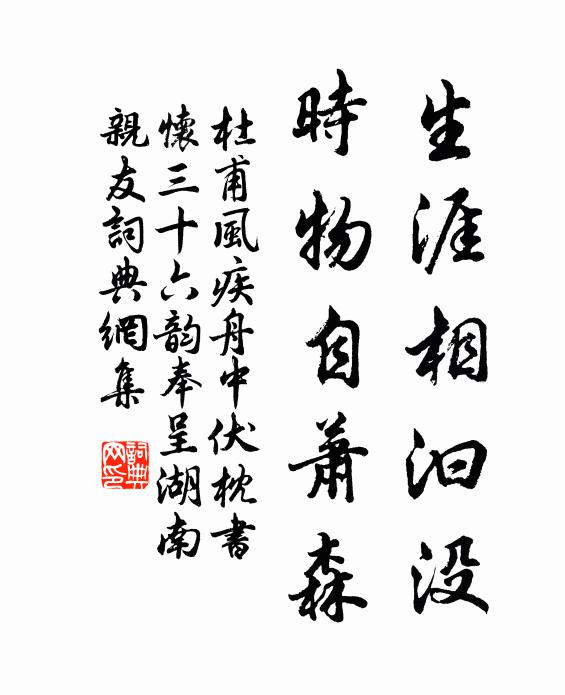 生涯相汩没
時物自蕭森
杜甫風疾舟中伏枕書
懷三十六韵奉呈湖南
親友詞典網集
詞典
网印